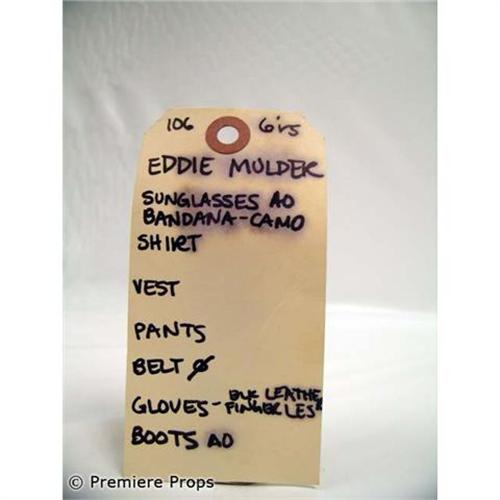 106 6'r5
EDDIE MULDER
SUNGLASSES AO
BANDANA-CAMO
SHIRT
VEST
PANTS
BELT Ø
GLOVES- BLK LEATHE
FINGERLES
BOOTS AO
© Premiere Props